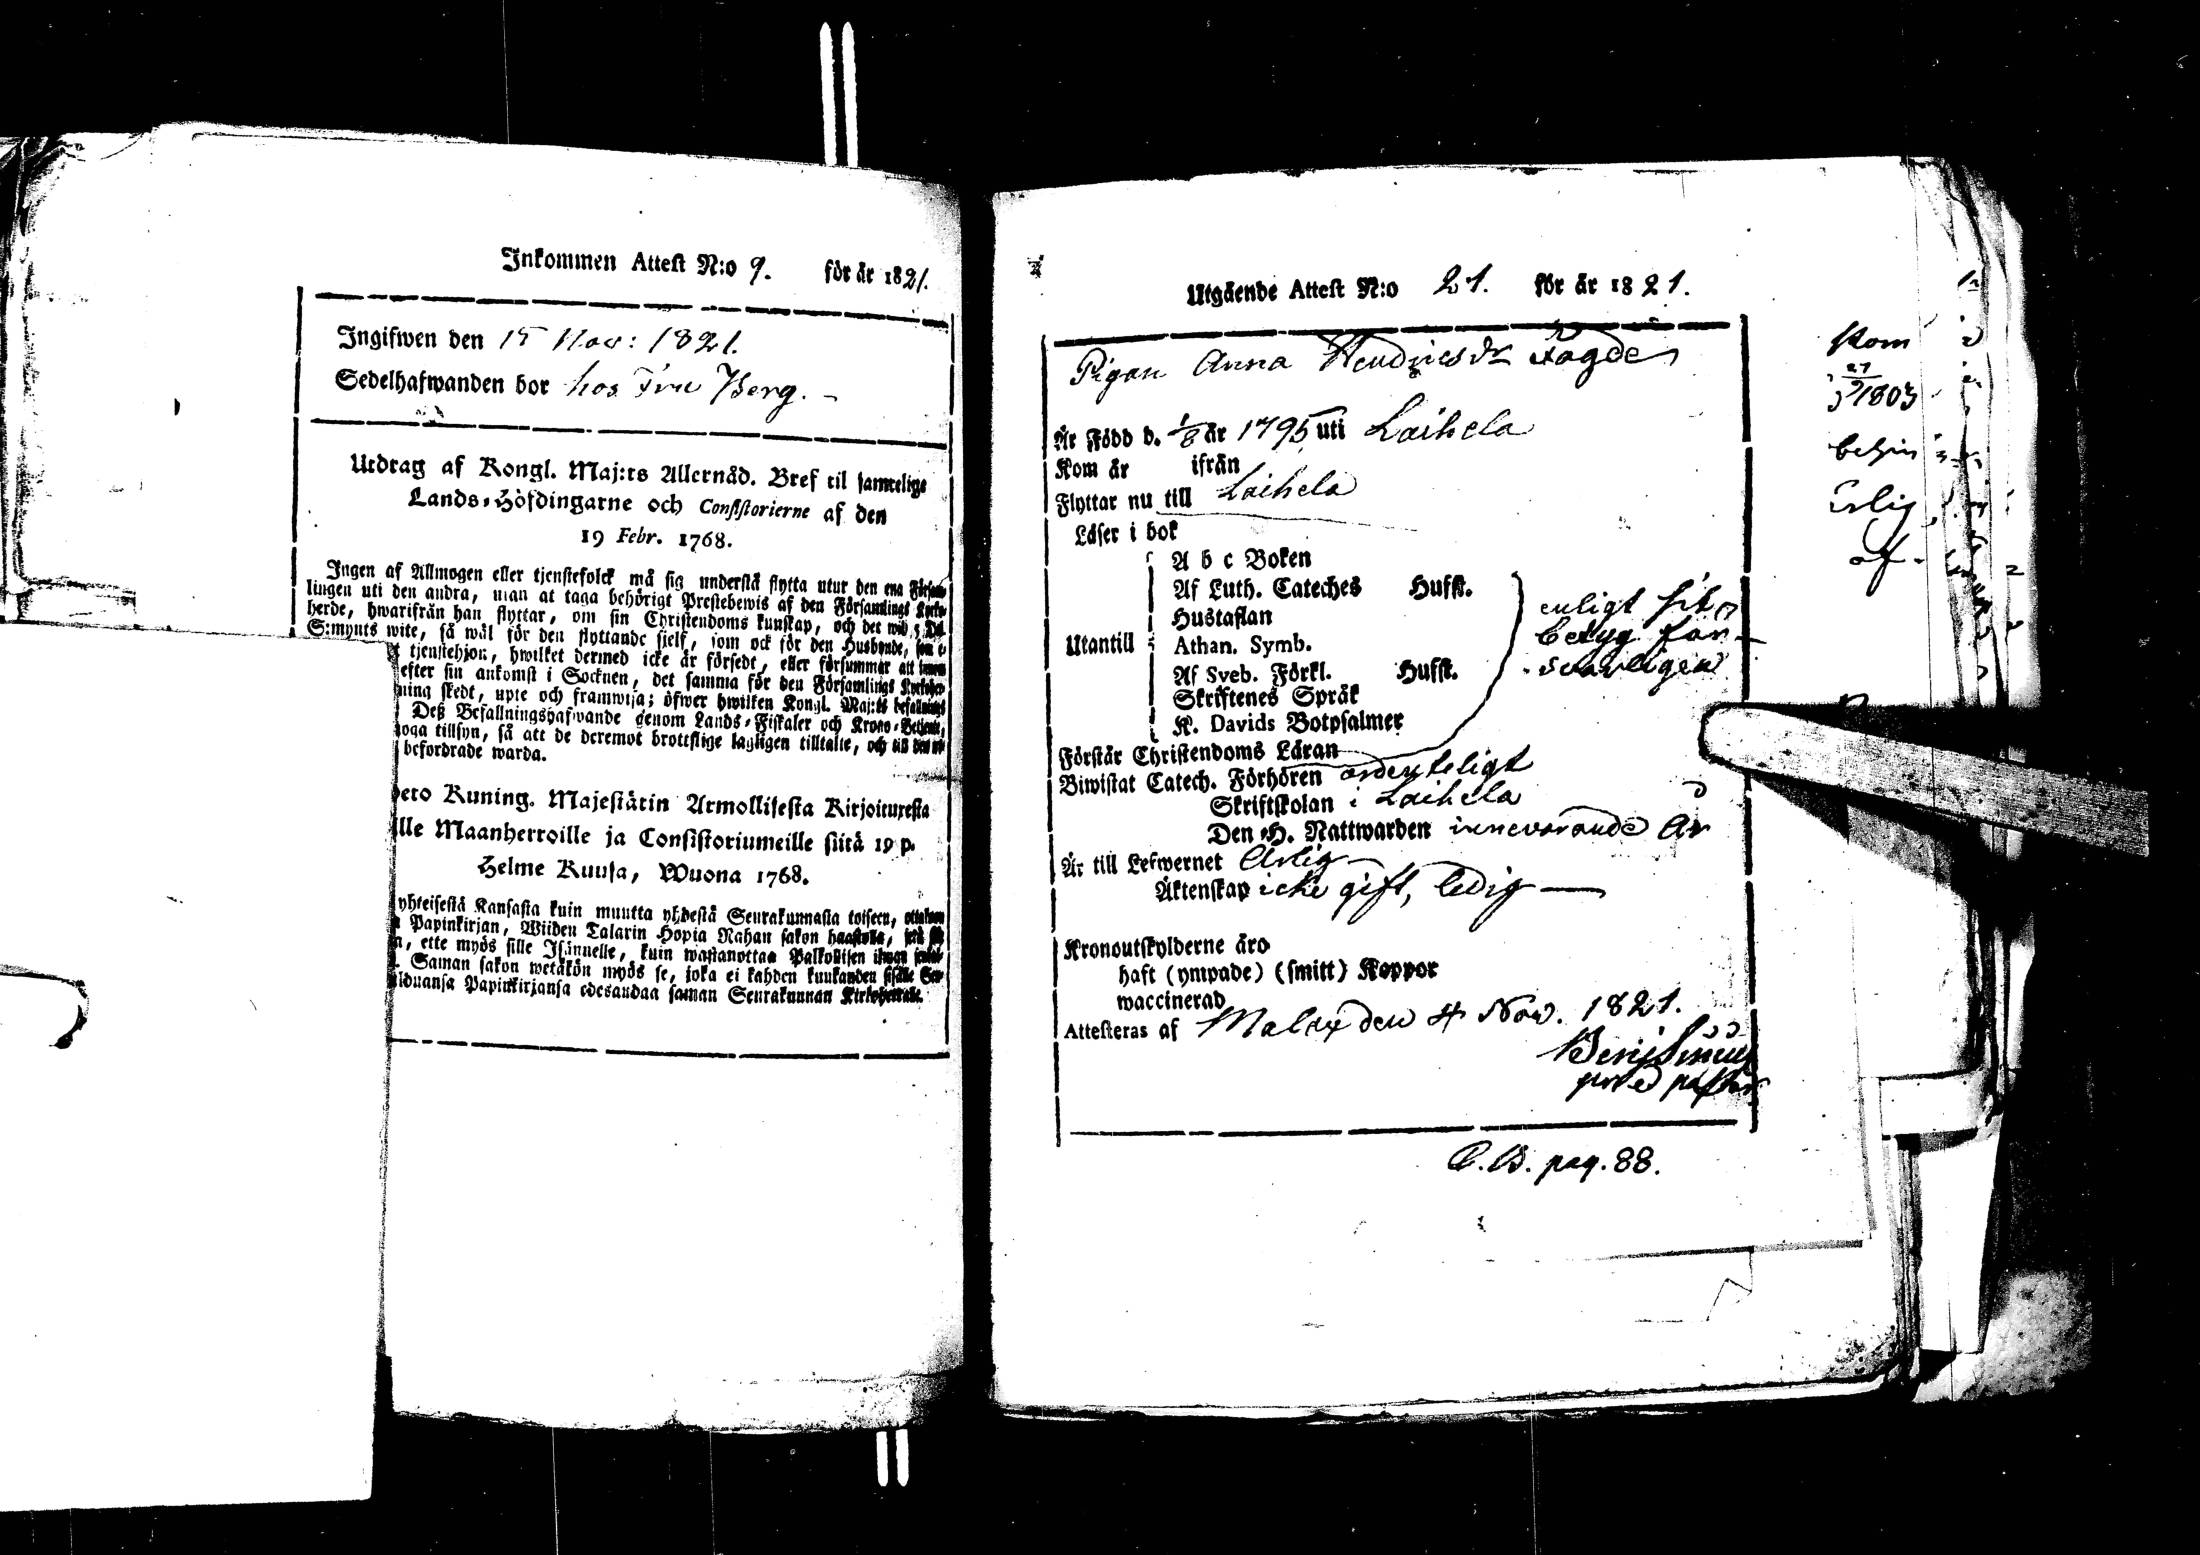 Inkommen Attest N:o 9. för år 1821.
Ingifwen den 15 Nov: 1821.
Sedelhafwanden bor hos Fru Berg.
Utdrag af Kongl. Maj:ts Allernåd. Bref til samtelige
Lands-Höfdingarne och Consistorierne af den
19 Febr. 1768.
Ingen af Allmogen eller tjenstefolck må sig understå flytta utur den ena Församlingen
lingen uti den andra, utan at taga behörigt Prestebewis af den Församlings
herde, hwarifrån han flyttar, om sin Christendoms kunskap, och det wid 5 Dal.
S:mynts wite, så wäl för den flyttande sjelf, som ock för den Husbonde, som
tjenstehjon, hwilket dermed icke är försedt, eller försummar att innom
efter sin ankomst i Socknen, det samma för den Församlings
ning skedt, upte och framwisa; öfwer hwilken Kongl. Maj:ts befallning
Deß Befallningshafwande genom Lands-Fiskaler och Krono-Betjente,
noga tillsyn, så att de deremot brottslige lagligen tilltalte, och
befordrade warda.
Kuning. Majestätin Armollisesta Kirjoituxesta
lle Maanherroille ja Consistoriumeille siitä 19 p.
Helme Kuusa, Wuona 1768.
yhteisestä Kansasta kuin muutta yhdestä Seurakunnasta toiseen, ottakaan
Papinkirjan, Wiiden Talarin Hopia Rahan sakon haastolla,
, ette myös sille Isännelle, kuin wastanottaa Palkollisen ilman
Saman sakon wetäkön myös se, joka ei kahden kuukauden sisälle
lduansa Papinkirjansa edesandaa saman Seurakunnan Kirkoherralle.
Utgående Attest N:o 21. för år 1821.
Pigan Anna Hendricsdr
Är Född d. 1/8 år 1795 uti Laihela
Kom år ifrån
Flyttar nu till Laihela
Läser i bok
A b c Boken
Af Luth. Cateches Hufst.
Hustaflan
Utantill Athan. Symb.
Af Sveb. Förkl. Hufst.
Skriftenes Språk
K. Davids Botpsalmer
enligt sit
betyg för-
svarligen
Förstår Christendoms Läran
Biwistat Catech. Förhören ordenteligt
Skriftskolan i Laihela
Den H. Nattwarden innevarande år
Är till Lefwernet Ärlig
Äktenskap icke gift, ledig
Kronoutskylderne äro
haft (ympade) (smitt) Koppor
waccinerad
Attesteras af Malax den 4 Nov. 1821.
past
C.B. pag. 88.
Kom
27
1803
Erlig
af